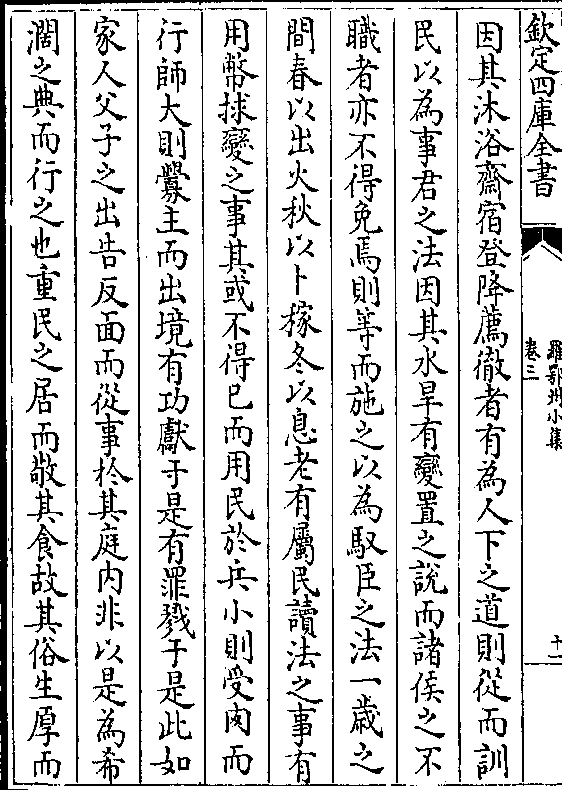 欽定四庫全書
羅鄂州小集
卷三
十一
因其沐浴齋宿登降薦徹者有為人下之道則從而訓
民以為事君之法因其水旱有變置之說而諸侯之不
職者亦不得免焉則等而施之以為馭臣之法一歲之
間春以出火秋以卜稼冬以息老有屬民讀法之事有
用幣捄變之事其或不得已而用民於兵小則受肉而
行師大則釁主而出境有功獻于是有罪戮于是此如
家人父子之出告反面而從事於其庭内非以是為希
濶之典而行之也重民之居而敬其食故其俗生厚而